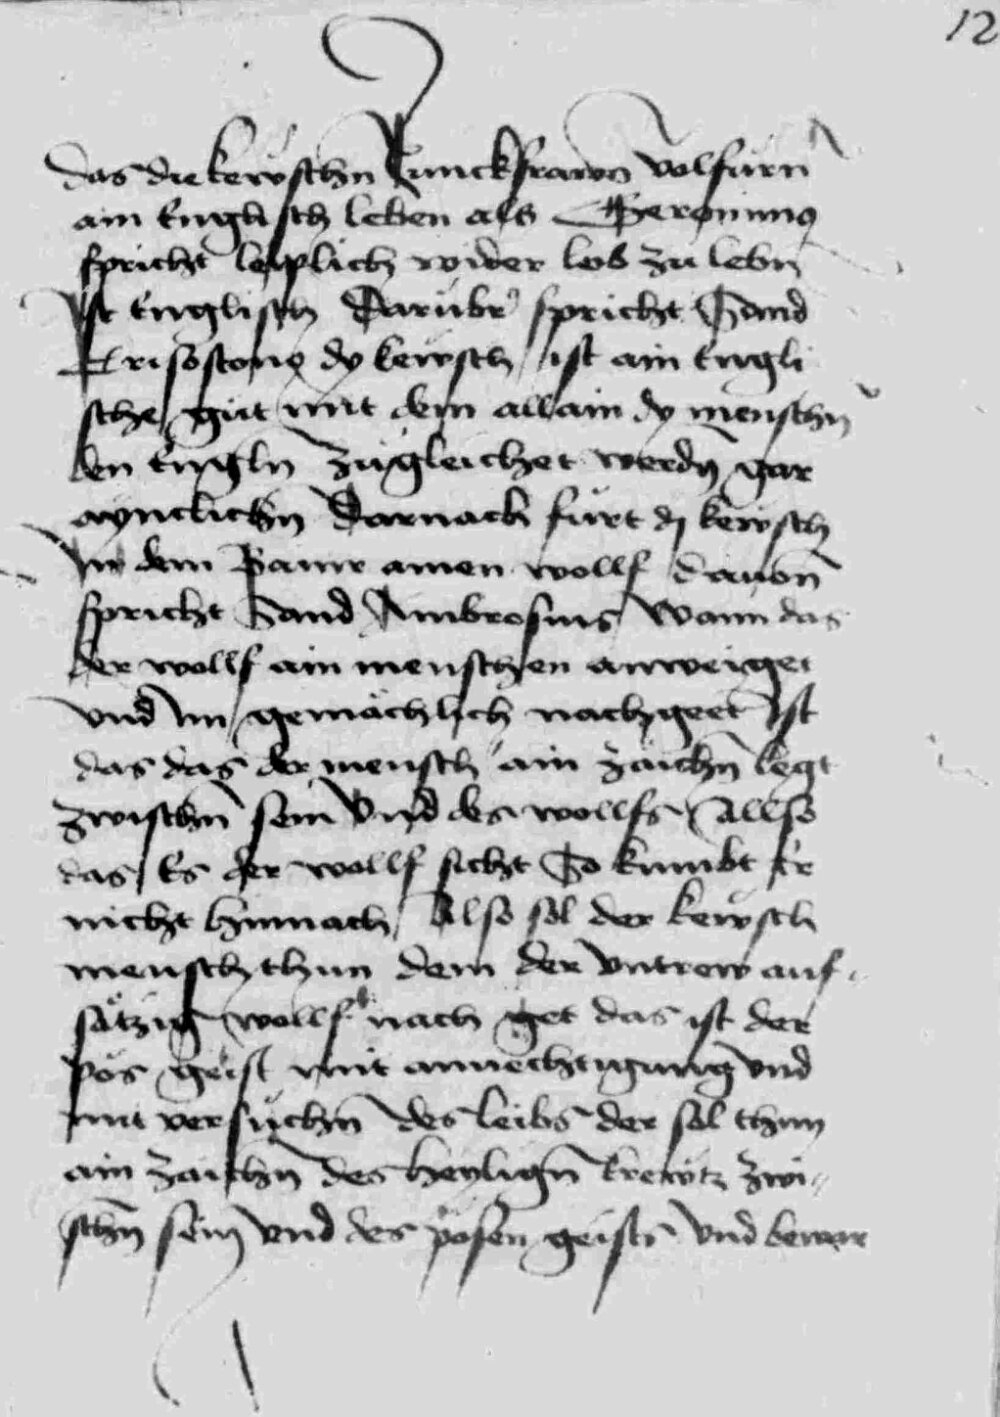 12
das die kewschn Junckfrawn volfürn
ain Englisch leben als Iheronimus
spricht leiplich wider leib zu lebn
Ist Englisch Darubr spricht Sand
Crisostomus dy kewsch ist ain Engli
sche gut mit dem allain dy menschn
den Engln zugleichet werdn gar
aynclichn Darnach fürt dy kewsch
in dem wollf dauon
spricht Sand Ambrosius Wann das
der wollf ain menschen anweiget
vnd im gemächlich nachgeet Ist
das das der mensch ain zaichn legt
zwischn sein vnd des wollfs Allso
das Es der wollf sicht So kumbt er
nicht hinnach Also sol der kewsch
mensch thun dem der vntrew auf-
sätzig wollf nach get das ist der
pös geist mit annechtigung vnd
mit versuchn des leibs der sol thun
ain zaichn des heylign krewtz zwi-
schn sein vnd des pösen geists vnd bewar